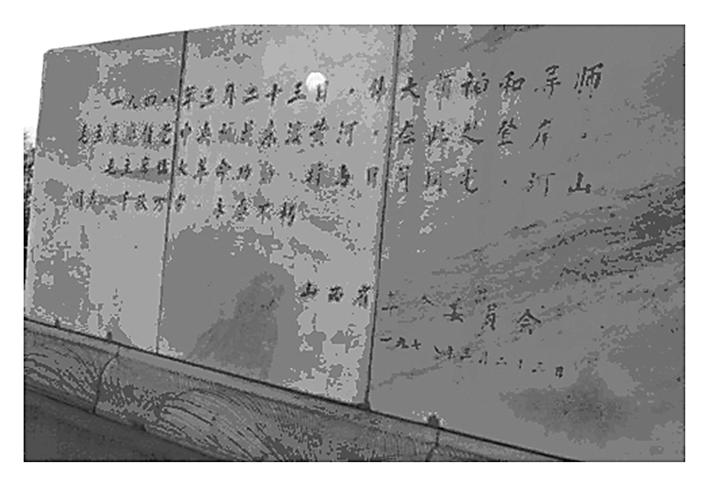 一九四八年三月二十三日，伟大领袖和导师
毛主席率领党中央机关东渡黄河，在此处登岸。
毛主席伟大革命功，将与日月同光，河山
同寿，千秋万，永垂不朽
山西省革命委员会
一九七八年三月二十三日